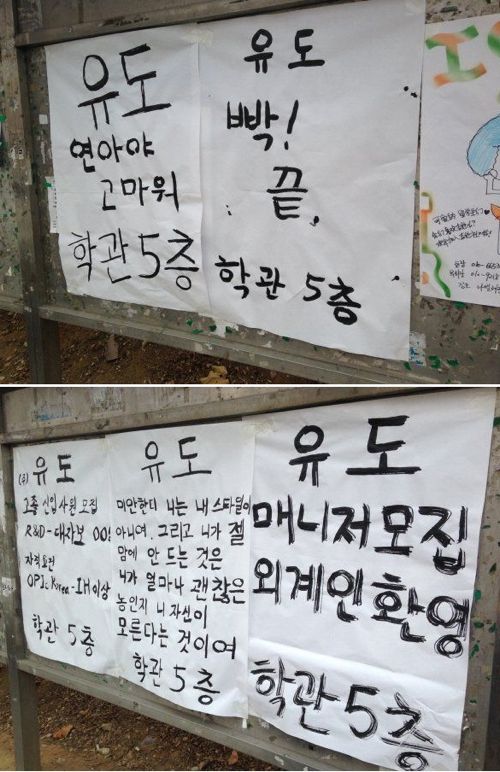 유도
연아야
고마워
학관 5층
유도
빡!
끝.
학관 5층
(주) 유도
고졸 신입사원 모집
R&D-대자보 00!
자격요건
OPIc Korea-IH이상
학관 5층
유도
미안한디 니는 내 스타일이
아니여. 그리고 니가 젤
맘에 안 드는 것은
니가 얼마나 괜찮은
놈인지 니 자신이
모른다는 것이여
학관 5층
유도
매니저모집
외계인환영
학관 5층